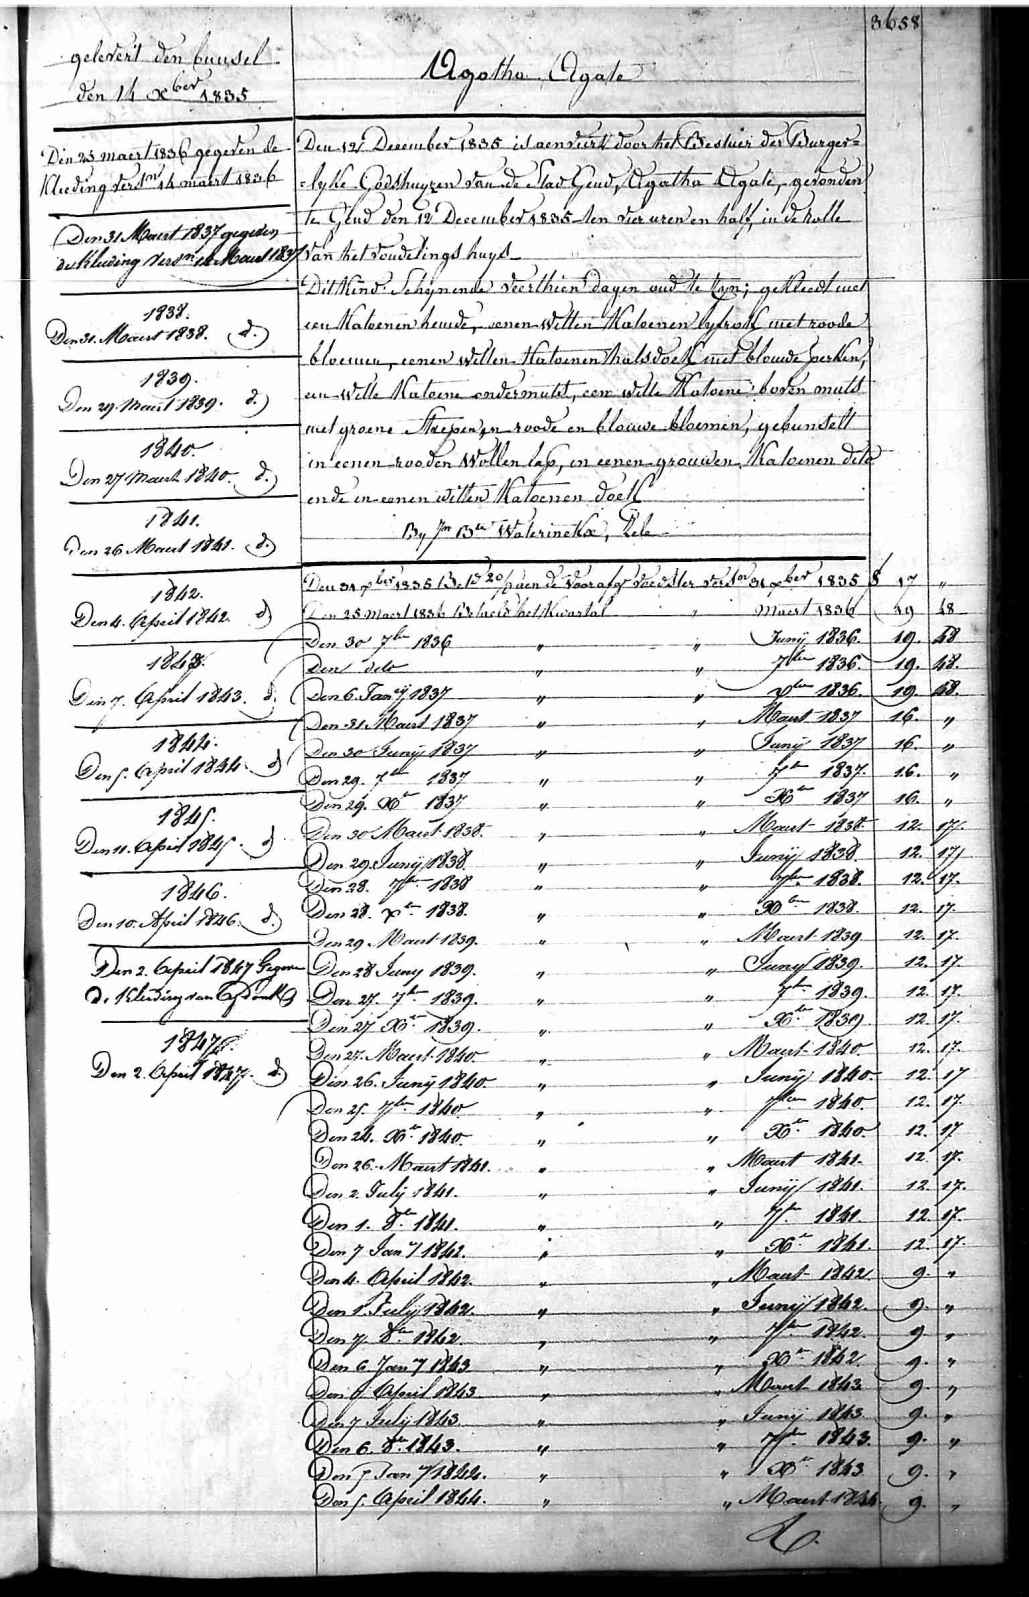 3658
gelevert den bunsel
den 14 Xber 1835
Den 25 maert 1836 gegeven de
Kleeding verstn 14 maert 1836
Den 31 Maert 1837 gegeven
de Kleeding verstn Maert 1837
1838.
Den 31. Maert 1838. d.
1839.
Den 29. Maert 1839. d.
1840.
Den 27 Maert 1840. d.
1841.
Den 26 Maert 1841. d.
1842.
Den 4. April 1842. d
1843.
Den 7. April 1843. d.
1844.
Den 5. April 1844. d
1845.
Den 11. April 1845. d
1846.
Den 10. April 1846. d.
Den 2. April 1847 Gegeven
de Kleeding van
1847.
Den 2. April 1847. d.
Agatha Agate
Den 12 December 1835 is aenveirt door het Bestuer der Burger=
=lyke Godshuyzen van de Stad Gend, Agatha Agate, gevonden
te Gend den 12 December 1835 ten vier uren en half, in de rolle
van het vondelings huys
Dit Kind Schynende veerthien dagen oud te zyn; gekleedt met
een Katoenen hemde, eenen witten Katoenen lyfrok met roode
bloemen, eenen witten Katoenen halsdoek met blouwe perken,
een witte Katoene ondermuts, een witte Katoene boven muts
met groene streepen en roode en blouwe bloemen, gebunselt
in eenen rooden Wollen lap, in eenen grouwen Katoenen dito
ende in eenen witten Katoenen doek
By Jn Bte Waterinckx, Zele
Den 31 Xber 1835 Betd 20/ aen de voorafg voedster verstn 31 Xber 1835 f 17 "
Den 25 maert 1836 betaeld het Kwartal " Maert 1836 19 48
Den 30 7ber 1836 " " Junij 1836 19. 48
Den dito " " 7ber 1836 19. 48.
Den 6. Janij 1837 " " Xber 1836 19. 48.
Den 31 Maert 1837 " " Maert 1837 16. "
Den 30 Junij 1837 " " Junij 1837 16. "
Den 29. 7ber 1837 " " 7ber 1837. 16. "
Den 29. Xber 1837 " " Xber 1837 16. "
Den 30 Maert 1838. " " Maert 1838 12. 17.
Den 29. Junij 1838 " " Junij 1838. 12. 17
Den 28. 7ber 1838 " " 7ber 1838. 12. 17.
Den 28. Xber 1838. " " Xber 1838. 12. 17.
Den 29 Maert 1839. " " Maert 1839 12. 17.
Den 28 Juny 1839. " " Juny 1839. 12. 17.
Den 27. 7ber 1839. " " 7ber 1839. 12 17.
Den 27 Xber 1839. " " Xber 1839. 12. 17.
Den 27. Maert 1840 " " Maert 1840. 12. 17.
Den 26. Junij 1840 " " Junij 1840. 12. 17
Den 25. 7ber 1840 " " 7ber 1840. 12. 17.
Den 24. Xber 1840. " " Xber 1840. 12. 17
Den 26. Maert 1841. " " Maert 1841. 12. 17.
Den 2. Julij 1841. " " Junij 1841. 12. 17.
Den 1. 8ber 1841. " " 7ber 1841. 12 17.
Den 7 Jany 1842. " " Xber 1841. 12. 17.
Den 4. April 1842. " " Maert 1842 9. "
Den 1. July 1842. " " Junij 1842. 9. "
Den 7. 8ber 1842. " " 7ber 1842. 9. "
Den 6 Jany 1843 " " Xber 1842. 9. "
Den 7 April 1843 " " Maert 1843 9. "
Den 7 Julij 1843. " " Junij 1843 9. "
Den 6. 8ber 1843. " " 7ber 1843. 9. "
Den 5 Jany 1844. " " Xber 1843 9. "
Den 5. April 1844. " " Maert 1844 9. "